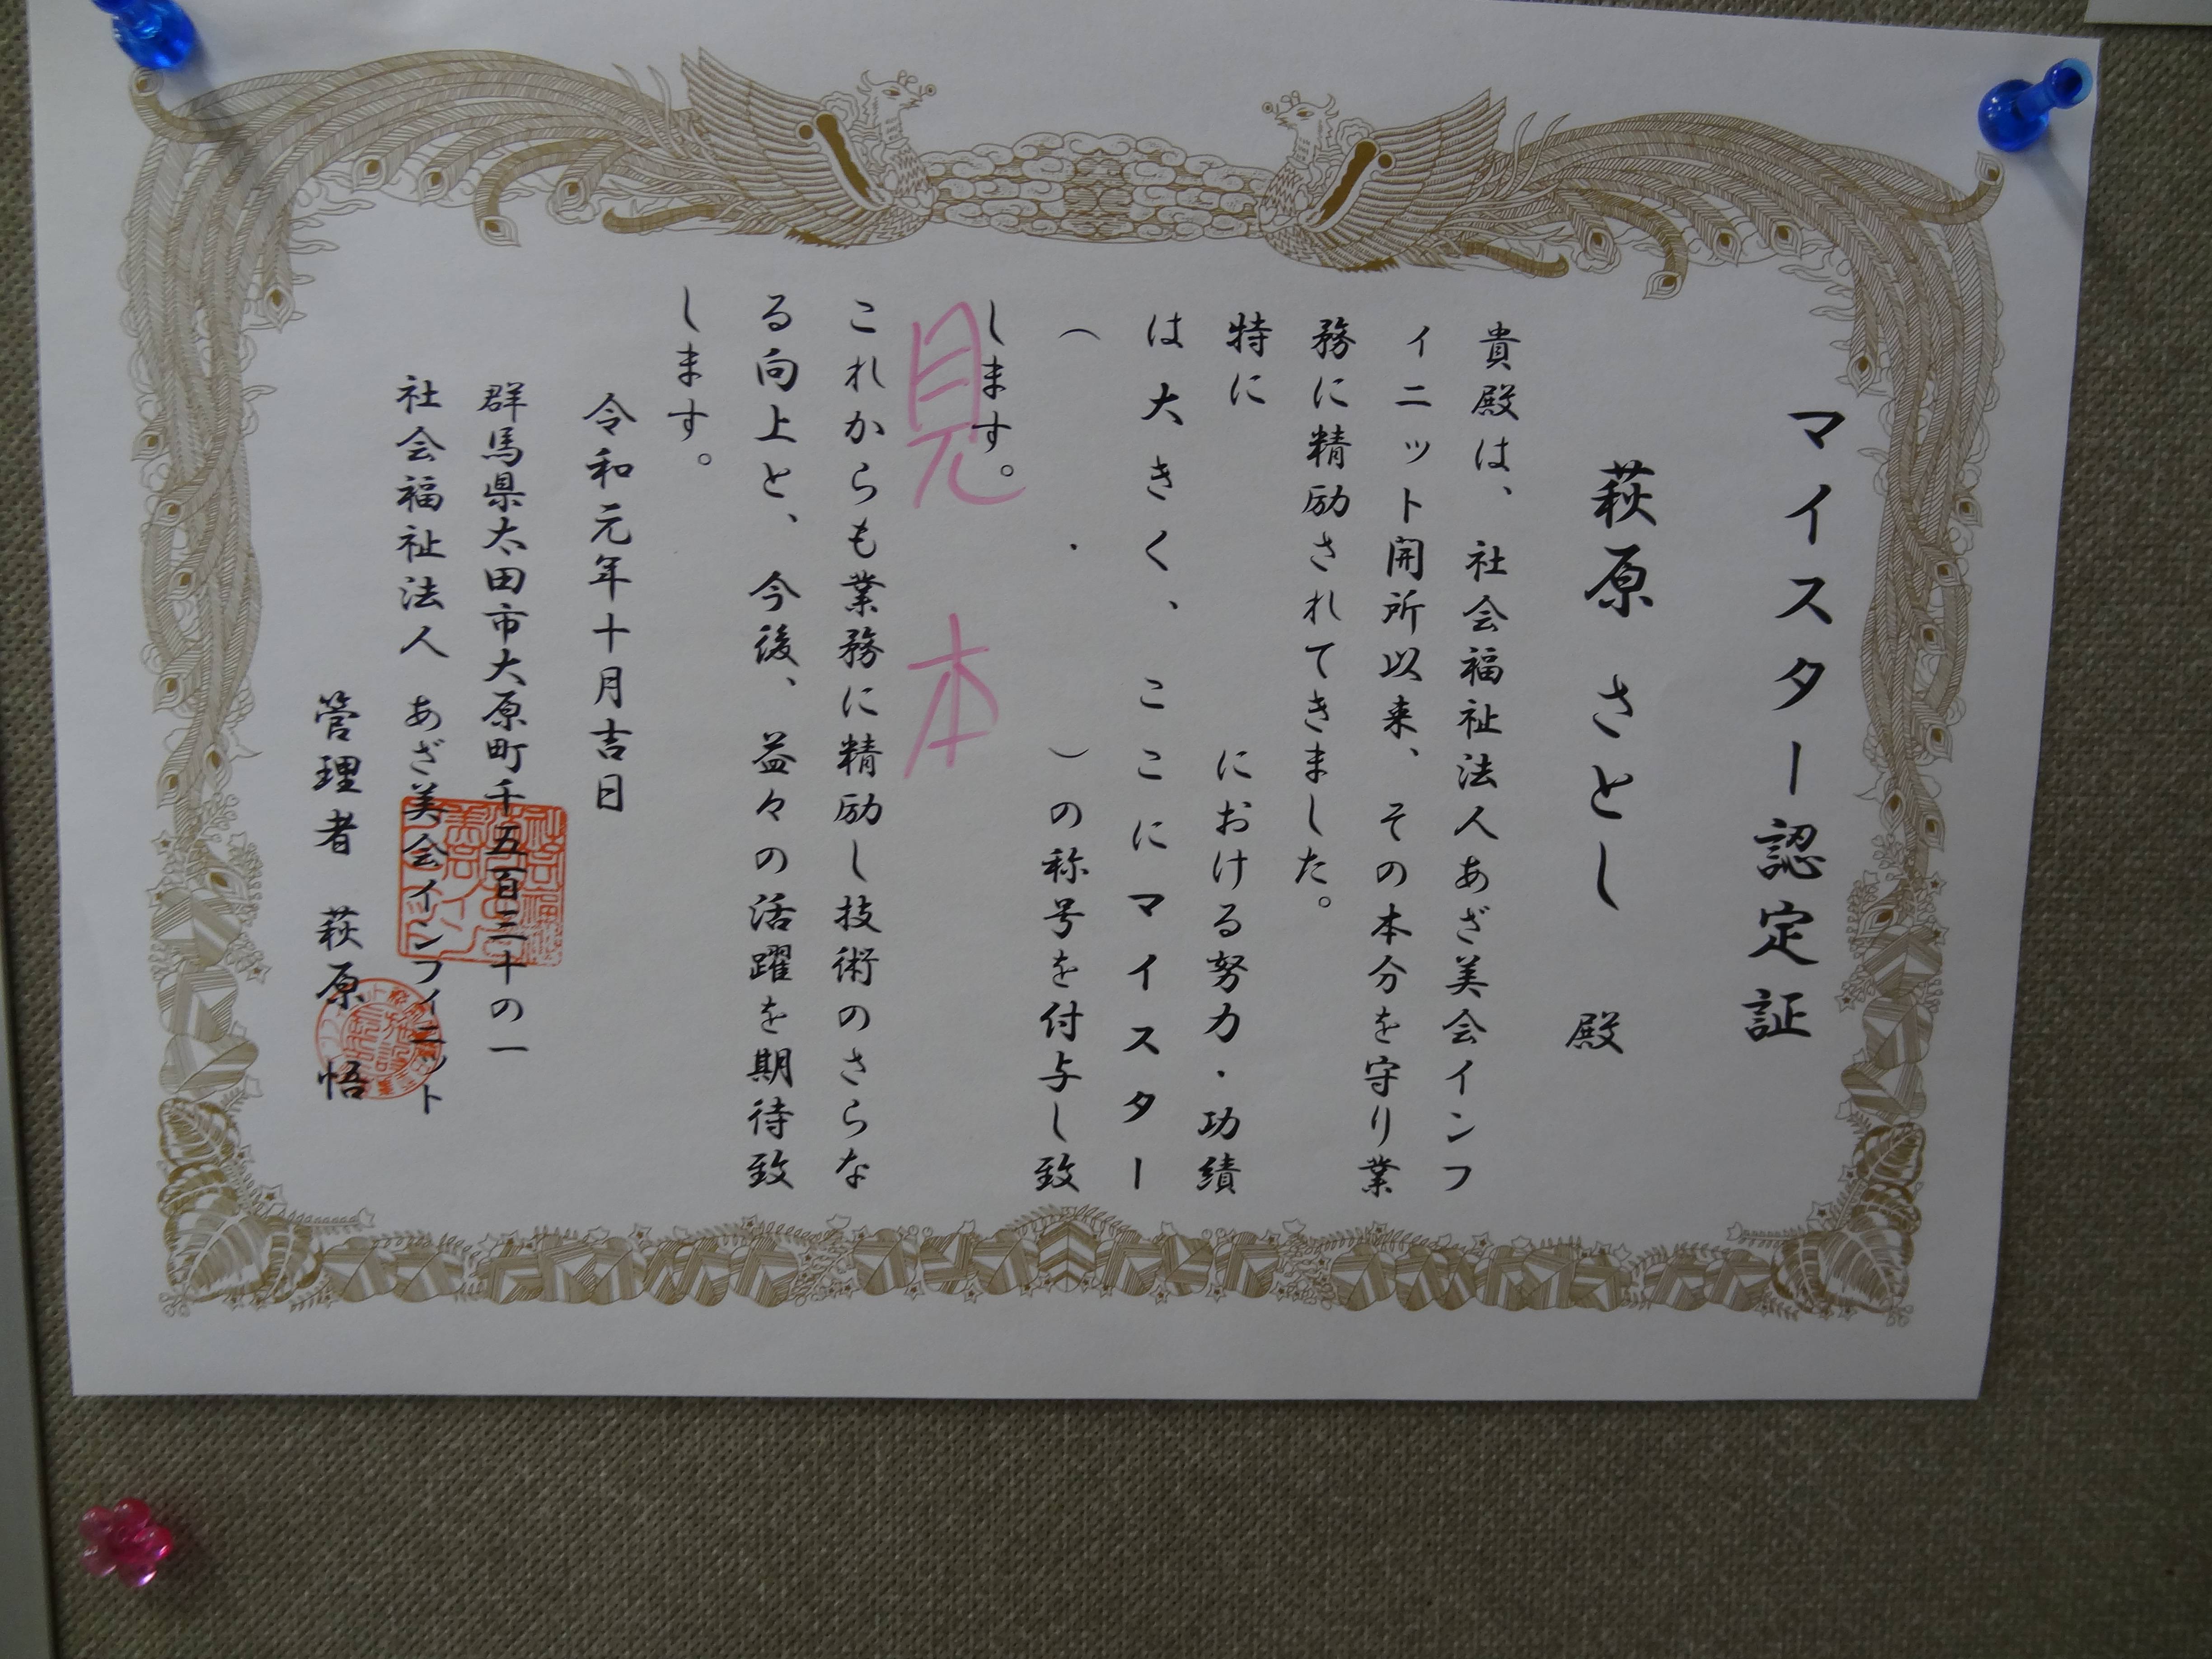 マイスター認定証
萩原 さとし 殿
貴殿は、社会福祉法人あざ美会インフ
ィニット開所以来、その本分を守り業
務に精励されてきました。
特に における努力・功績
は大きく、ここにマイスター
( ・ )の称号を付与し致
します。
見本
これからも業務に精励し技術のさらな
る向上と、今後、益々の活躍を期待致
します。
令和元年十月吉日
群馬県太田市大原町千五百三十の一
社会福祉法人 あざ美会インフィニット
管理者 萩原 悟